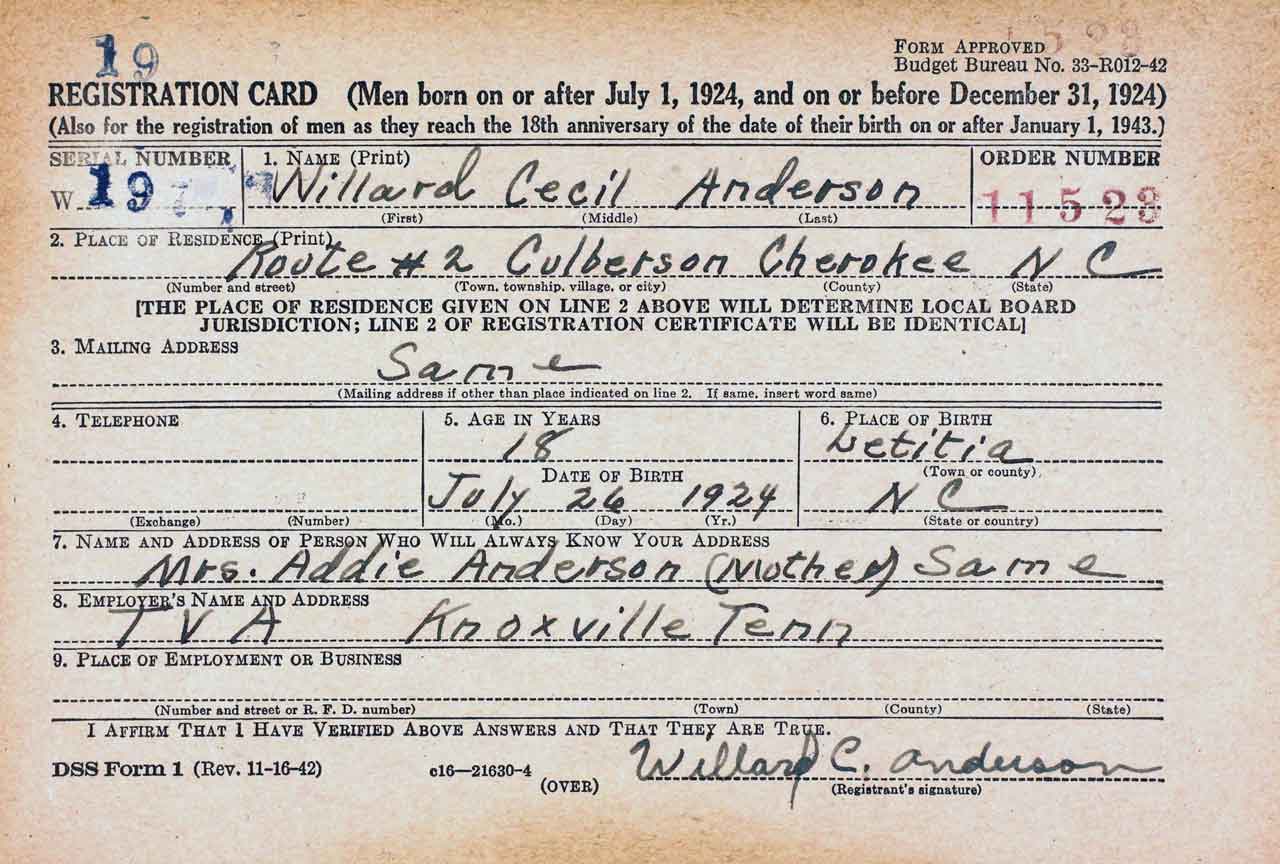 19
FORM APPROVED
Budget Bureau No. 33-R012-42
REGISTRATION CARD (Men born on or after July 1, 1924, and on or before December 31, 1924)
(Also for the registration of men as they reach the 18th anniversary of the date of their birth on or after January 1, 1943.)
SERIAL NUMBER 1. NAME (Print) ORDER NUMBER
W 19 Willard Cecil Anderson 11523
(First) (Middle) (Last)
2. PLACE OF RESIDENCE (Print)
Route #2 Culberson Cherokee N C
(Number and street) (Town, township, village, or city) (County) (State)
[THE PLACE OF RESIDENCE GIVEN ON LINE 2 ABOVE WILL DETERMINE LOCAL BOARD
JURISDICTION; LINE 2 OF REGISTRATION CERTIFICATE WILL BE IDENTICAL]
3. MAILING ADDRESS
Same
(Mailing address if other than place indicated on line 2. If same, insert word same)
4. TELEPHONE 5. AGE IN YEARS 6. PLACE OF BIRTH
18 Letitia
DATE OF BIRTH (Town or county)
July 26 1924 N C
(Exchange) (Number) (Mo.) (Day) (Yr.) (State or country)
7. NAME AND ADDRESS OF PERSON WHO WILL ALWAYS KNOW YOUR ADDRESS
Mrs. Addie Anderson (Mother) Same
8. EMPLOYER'S NAME AND ADDRESS
T V A Knoxville Tenn
9. PLACE OF EMPLOYMENT OR BUSINESS
(Number and street or R. F. D. number) (Town) (County) (State)
I AFFIRM THAT I HAVE VERIFIED ABOVE ANSWERS AND THAT THEY ARE TRUE.
Willard C. Anderson
DSS Form 1 (Rev. 11-16-42) c16—21630-4
(OVER) (Registrant's signature)